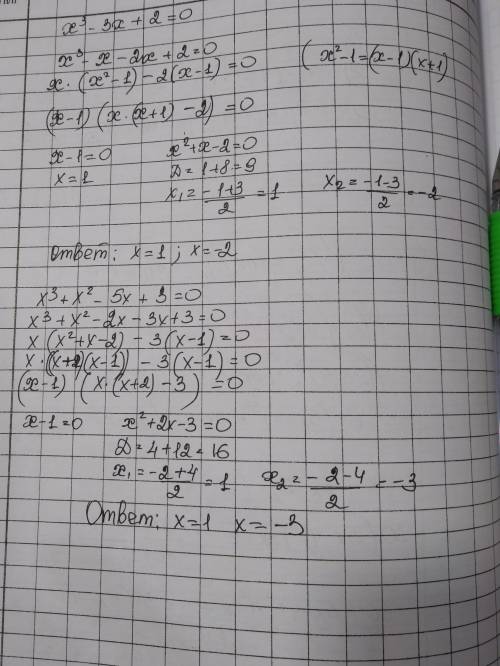 x³ - 3x + 2 = 0
x³ - x - 2x + 2 = 0
x · (x² - 1) - 2(x - 1) = 0 ( x² - 1 = (x - 1)(x + 1)
(x - 1) (x · (x + 1) - 2) = 0
x - 1 = 0 x² + x - 2 = 0
x = 1 D = 1 + 8 = 9
x₁ = (-1 + 3)/2 = 1 x₂ = (-1 - 3)/2 = -2
Ответ: x = 1 ; x = -2
x³ + x² - 5x + 3 = 0
x³ + x² - 2x - 3x + 3 = 0
x (x² + x - 2) - 3(x - 1) = 0
x · ((x + 2)(x - 1)) - 3(x - 1) = 0
(x - 1) (x · (x + 2) - 3) = 0
x - 1 = 0 x² + 2x - 3 = 0
D = 4 + 12 = 16
x₁ = (-2 + 4)/2 = 1 x₂ = (-2 - 4)/2 = -3
Ответ: x = 1 x = -3